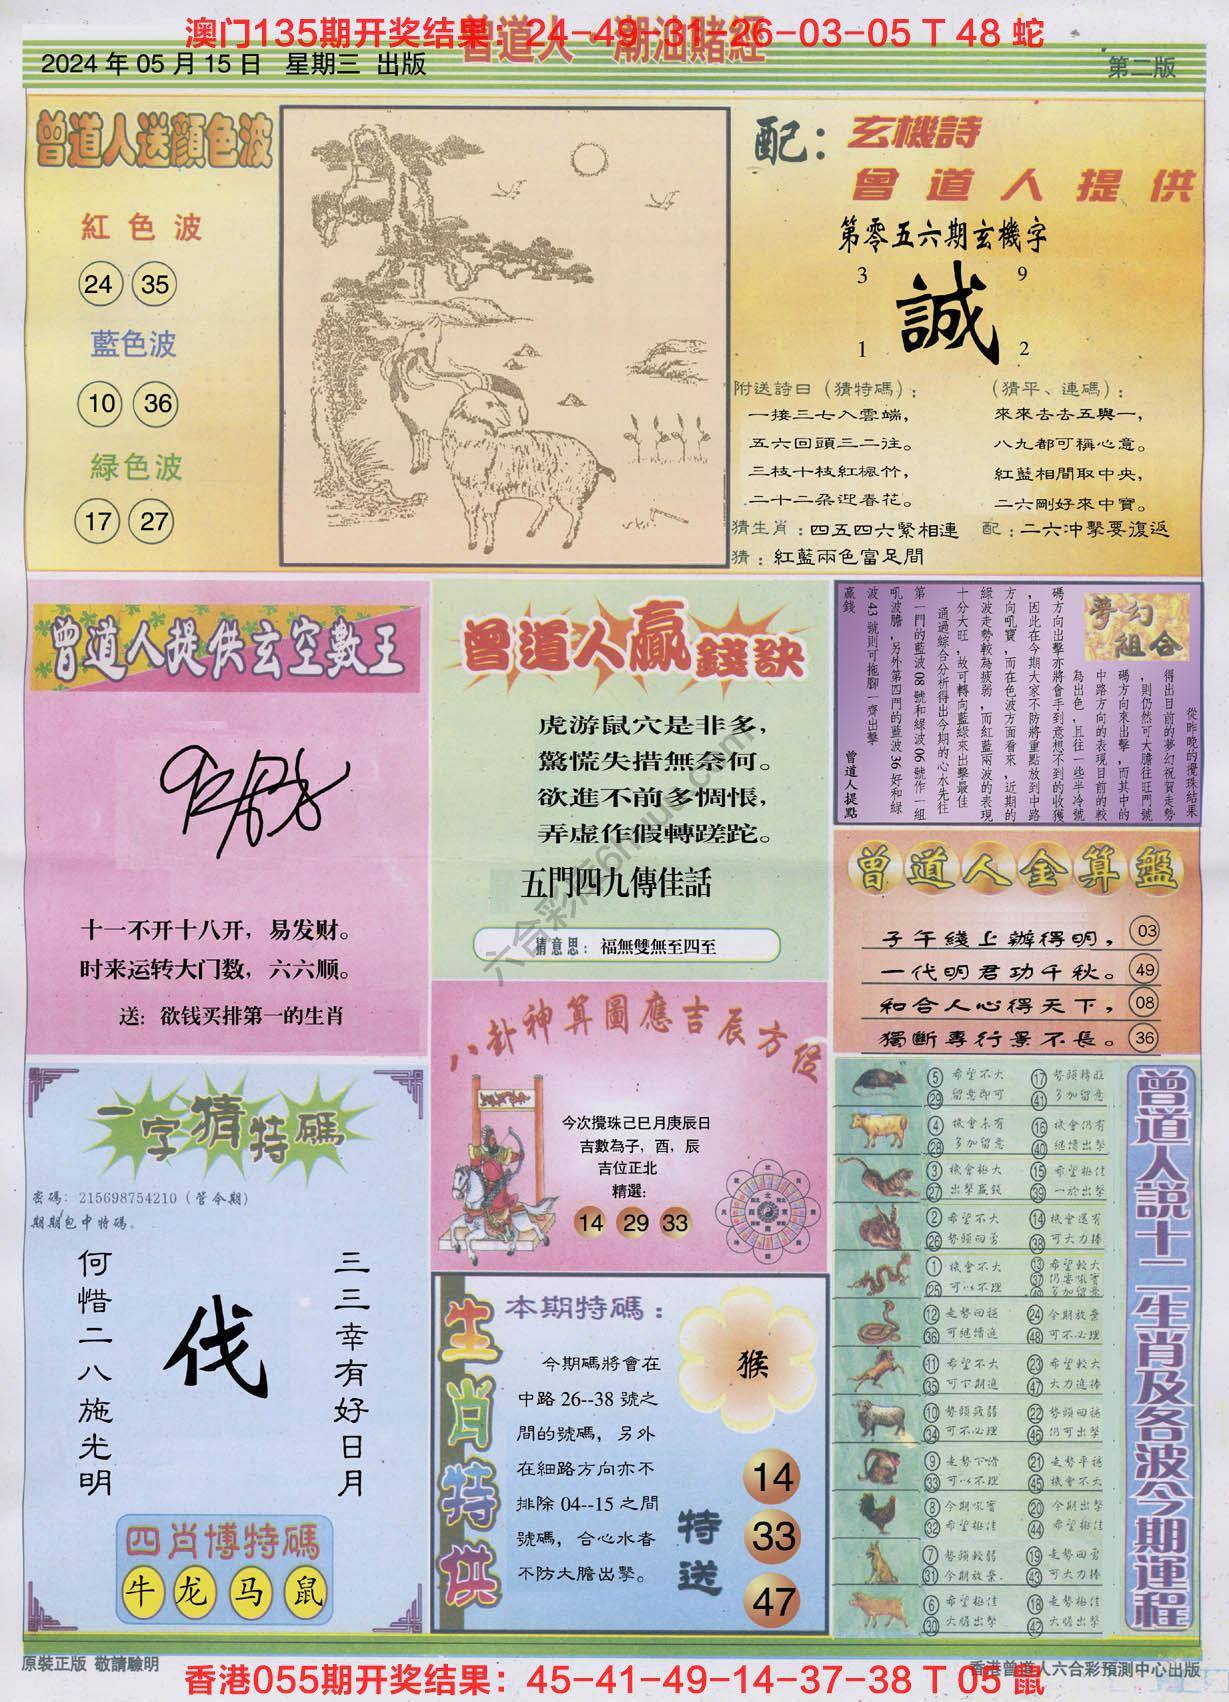 澳门135期开奖结果：24-49-31-26-03-05 T 48 蛇
曾道人·潮汕賭經
2024 年 05 月 15 日 星期三 出版
第二版
曾道人送顏色波
紅色波
24 35
藍色波
10 36
緑色波
17 27
配：玄機詩
曾道人提供
第零五六期玄機字
3 9
誠
1 2
附送詩曰（猜特碼）：
一接三七入雲端，
五六回頭三二往。
三枝十枝紅楓竹，
二十二朶迎春花。
（猜平、連碼）：
來來去去五與一，
八九都可稱心意。
紅藍相間取中央，
二六剛好來中寶。
猜生肖：四五四六緊相連 配：二六冲擊要復返
猜：紅藍兩色富足間
曾道人提供玄空數王
十一不开十八开，易发财。
时来运转大门数，六六顺。
送：欲钱买排第一的生肖
曾道人贏錢訣
虎游鼠穴是非多，
驚慌失措無奈何。
欲進不前多惆悵，
弄虛作假轉蹉跎。
五門四九傳佳話
猜意思：福無雙無至四至
六合彩库56tuku.com
夢幻組合
從昨晚的攪珠結果
得出目前的夢幻祝賀走勢
，則仍然可大膽往旺門號
碼方向來出擊，而其中的
中路方向的表現目前的較
為出色，且往一些半冷號
碼方向出擊亦將會手到意想不到的收獲
，因此在今期大家不防將重點放到中路
方向吼寶，而在色波方面看來，近期的
綠波走勢較為疲弱，而紅藍兩波的表現
十分大旺，故可轉向藍綠來出擊最佳
通過綜合分析得出今期的心水先往
第一門的藍波 08 號和綠波 06 號作一組
吼波膽，另外第四門的藍波 36 好和綠
波 43 號則可拖腳一齊出擊
贏錢
曾道人提點
曾道人金算盤
子午綫上辦得明， 03
一代明君功千秋。 49
和合人心得天下， 08
獨斷專行景不長。 36
八卦神算圖應吉辰方位
今次攪珠己巳月庚辰日
吉數為子，酉，辰
吉位正北
精選：
14 29 33
一字猜特碼
密碼：215698754210（管令期）
期期包中特碼。
三三幸有好日月
伐
何惜二八施光明
四肖博特碼
牛 龙 马 鼠
生肖特供
本期特碼：
猴
今期碼將會在
中路 26--38 號之
間的號碼，另外
在細路方向亦不
排除 04--15 之間
號碼，合心水者
不防大膽出擊。
特送
14
33
47
曾道人説十二生肖及各波今期運程
5 希望不大 17 勢頭轉旺
29 留意即可 41 多加留意
4 機會未有 16 機會仍有
28 多加留意 40 繼續出擊
3 機會極大 15 希望極佳
27 出擊贏錢 39 一於出擊
2 希望不大 14 機會還有
26 勢頭回勇 38 可大力捧
1 機會不大 13 希望較大
25 可以不理
12 走勢回穩 24 今期放棄
36 可繼續追 48 可不必理
11 希望不大 23 希望較大
35 可下期追 47 大力追捧
10 勢頭疲弱 22 勢頭回穩
34 可不必理 46 仍可出擊
9 走勢下滑 21 走勢平穩
33 可以不理 45 機會不大
8 今期吼寶 20 今期出擊
32 希望極佳 44 希望極佳
7 勢頭較弱 19 走勢回勇
31 今期放棄. 43 可大力捧
6 希望極佳 18 走勢極佳
30 大膽出擊 42 大膽出擊
原裝正版 敬請驗明
香港曾道人六合彩預測中心出版
香港055期开奖结果：45-41-49-14-37-38 T 05 鼠